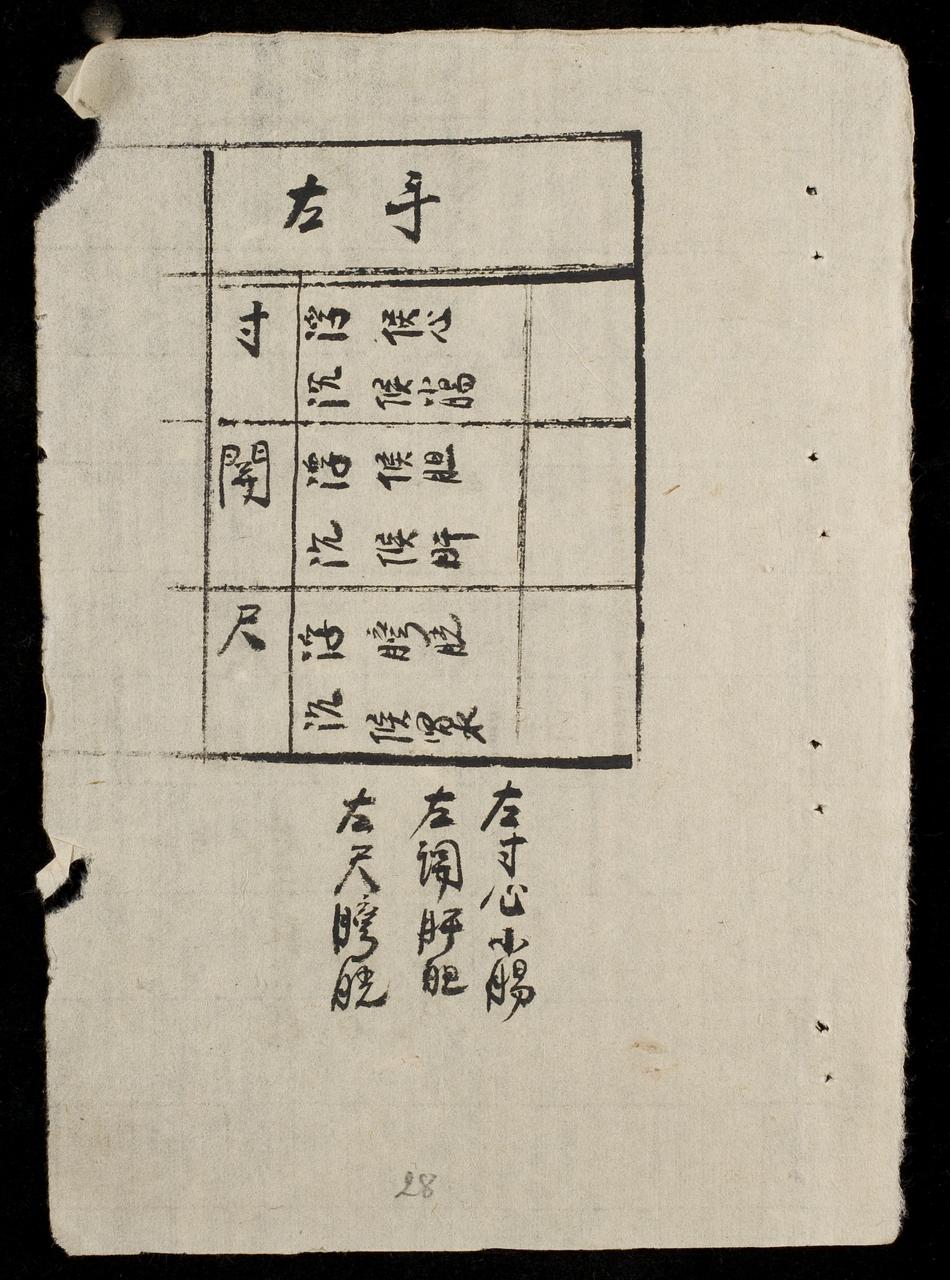 左手
寸 浮候心
沉候小腸
關 浮候胆
沉候肝
尺 浮膀胱
沉候
左寸心小腸
左関肝胆
左尺膀胱
28